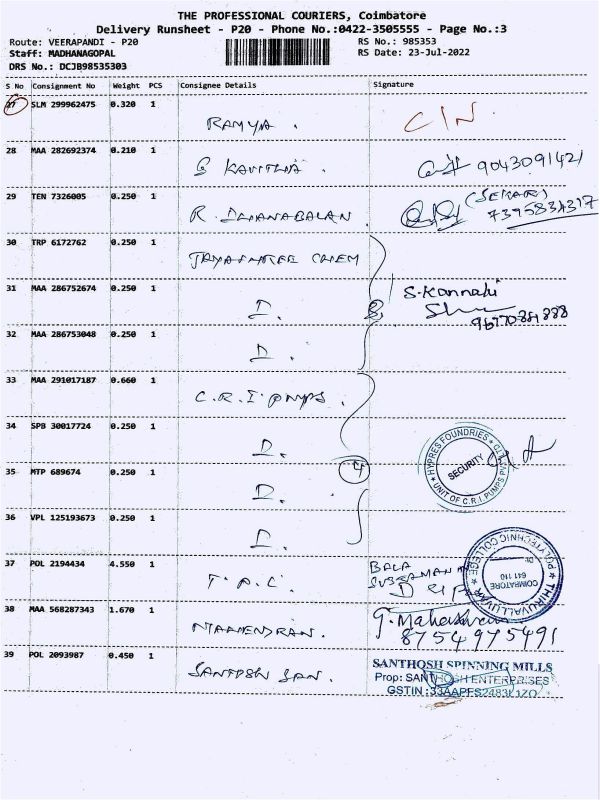 THE PROFESSIONAL COURIERS, Coimbatore
Delivery Runsheet - P20 - Phone No.:0422-3505555 - Page No.:3
Route: VEERAPANDI - P20 RS No.: 985353
Staff: MADHANAGOPAL RS Date: 23-Jul-2022
DRS No.: DCJB98535303
S No Consignment No Weight PCS Consignee Details Signature
27 SLM 299962475 0.320 1
RAMYA. C/N
28 MAA 282692374 0.210 1
S KAVITHA. 9043091421
29 TEN 7326005 0.250 1
R. DHANABALAN (SEKAR)
7395834317
30 TRP 6172762 0.250 1
JAYASHREE CHEM
31 MAA 286752674 0.250 1
D. S. Kannaki
32 MAA 286753048 0.250 1
D.
33 MAA 291017187 0.660 1
C.R.I PUMPS.
34 SPB 30017724 0.250 1
D.
35 MTP 689674 0.250 1
D. 4
HYPRES FOUNDRIES
SECURITY
UNIT OF C.R.I. PUMPS
36 VPL 125193673 0.250 1
D.
37 POL 2194434 4.550 1
T.P.C. BALA
THIRUVALLUVAR POLYTECHNIC COLLEGE
COIMBATORE
641 110
38 MAA 568287343 1.670 1
MAHENDRAN. G. Maheshwari
8754975491
39 POL 2093987 0.450 1
SANTOSH SPN.
SANTHOSH SPINNING MILLS
Prop: SANTHOSH ENTERPRISES
GSTIN :